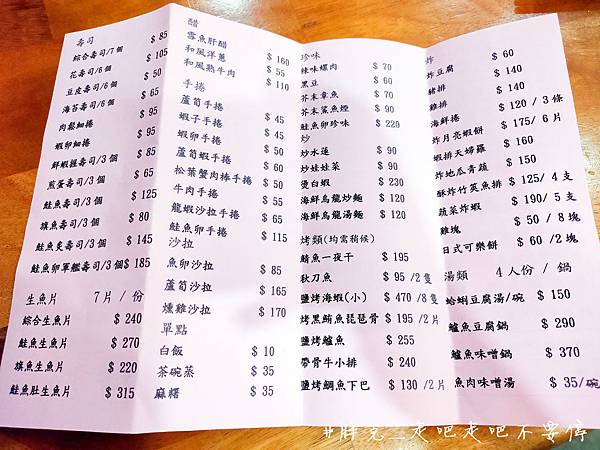 壽司
綜合壽司/7個 $ 85
花壽司/5個 $ 105
豆皮壽司/6個 $ 50
海苔壽司/6個 $ 65
肉鬆細捲 $ 95
蝦卵細捲 $ 95
鮮蝦握壽司/3個 $ 85
煎蛋壽司/3個 $ 65
鮭魚壽司/3個 $ 125
旗魚壽司/3個 $ 80
鮭魚炙壽司/3個 $ 145
鮭魚卵軍艦壽司/3個 $ 185
生魚片 7片 / 份
綜合生魚片 $ 240
鮭魚生魚片 $ 270
旗魚生魚片 $ 220
鮭魚肚生魚片 $ 315
醋
雪魚肝醋 $ 160
和風洋蔥 $ 55
和風熟牛肉 $ 110
手捲
蘆筍手捲 $ 45
蝦子手捲 $ 45
蝦卵手捲 $ 60
蘆筍蝦手捲 $ 50
松葉蟹肉棒手捲 $ 50
牛肉手捲 $ 55
龍蝦沙拉手捲 $ 65
鮭魚卵手捲 $ 115
沙拉
魚卵沙拉 $ 85
蘆筍沙拉 $ 165
燻雞沙拉 $ 170
單點
白飯 $ 10
茶碗蒸 $ 35
麻糬 $ 35
珍味
辣味螺肉 $ 70
黑豆 $ 60
芥末章魚 $ 70
芥末鯊魚煙 $ 90
鮭魚卵珍味 $ 220
炒
炒水蓮 $ 90
炒娃娃菜 $ 90
燙白蝦 $ 230
海鮮烏龍炒麵 $ 120
海鮮烏龍湯麵 $ 120
烤類(均需稍候)
鯖魚一夜干 $ 195
秋刀魚 $ 95 /2隻
鹽烤海蝦(小) $ 470 /8隻
烤黑鮪魚琵琶骨 $ 195 /2片
鹽烤鱸魚 $ 255
帶骨牛小排 $ 240
鹽烤鯛魚下巴 $ 130 /2片
炸
炸豆腐 $ 60
豬排 $ 140
雞排 $ 140
海鮮捲 $ 120 / 3條
炸月亮蝦餅 $ 175/ 6片
蝦排天婦羅 $ 160
炸地瓜青蔬 $ 150
酥炸竹筴魚排 $ 125/ 4支
蔬菜炸蝦 $ 190/ 5支
雞塊 $ 50 / 8塊
日式可樂餅 $ 60 /2塊
湯類 4人份 / 鍋
蛤蜊豆腐湯/碗 $ 150
鱸魚豆腐鍋 $ 290
鱸魚味噌鍋 $ 370
魚肉味噌湯 $ 35/碗
#胖兒_走吧走吧不要停